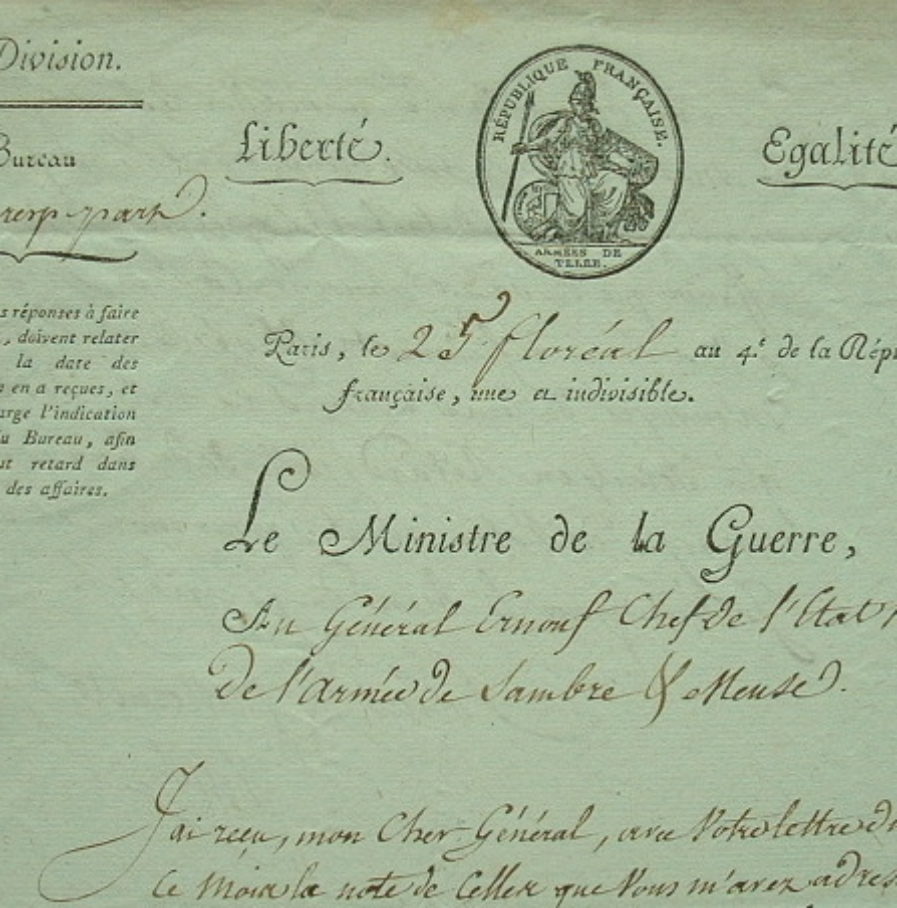 Division.
Bureau
part.
Liberté.
RÉPUBLIQUE FRANÇAISE.
ARMÉES DE
TERRE.
Egalité
s réponses à faire
, doivent relater
la date des
en a reçues, et
arge l'indication
du Bureau, afin
ut retard dans
des affaires.
Paris, le 25 floréal au 4.e de la Répu
française, une et indivisible.
Le Ministre de la Guerre,
Au Général Ernouf Chef de l'Etat
De l'Armée de Sambre & Meuse.
J'ai reçu, mon Cher Général, avec Votre lettre du
Ce Mois la note de Celles que Vous m'avez adres